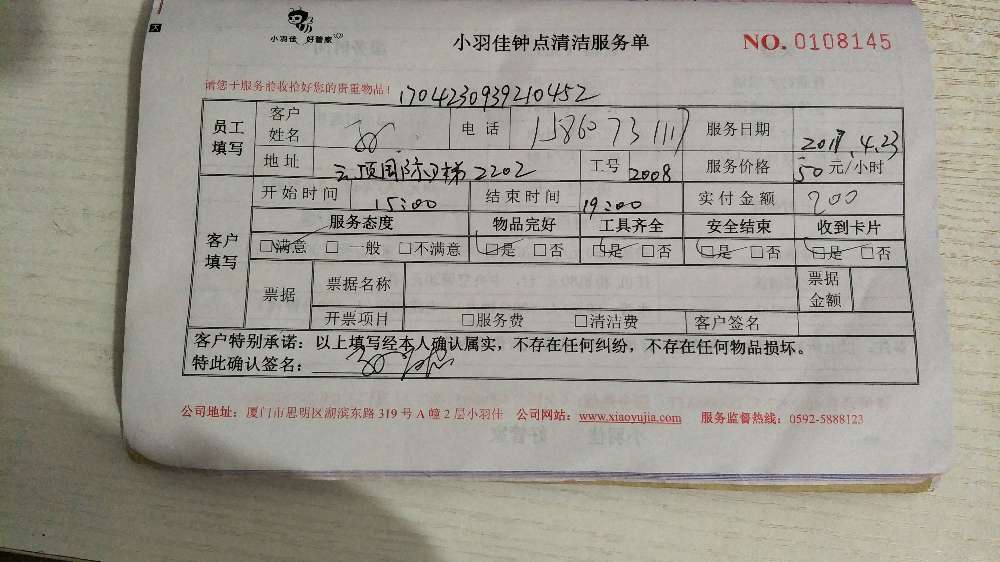 小羽佳 好管家
小羽佳钟点清洁服务单
NO. 0108145
请您于服务前收捡好您的贵重物品！ 1704230939210452
员工填写 客户姓名 电话 服务日期 2017.4.23
地址 云顶国际 梯2202 工号 2008 服务价格 50元/小时
客户填写 开始时间 15:00 结束时间 19:00 实付金额 200
服务态度 物品完好 工具齐全 安全结束 收到卡片
□满意 □一般 □不满意 □是 □否 □是 □否 □是 □否 □是 □否
票据 票据名称 票据金额
开票项目 □服务费 □清洁费 客户签名
客户特别承诺：以上填写经本人确认属实，不存在任何纠纷，不存在任何物品损坏。
特此确认签名：
公司地址：厦门市思明区湖滨东路319号A幢2层小羽佳 公司网站：www.xiaoyujia.com 服务监督热线：0592-5888123